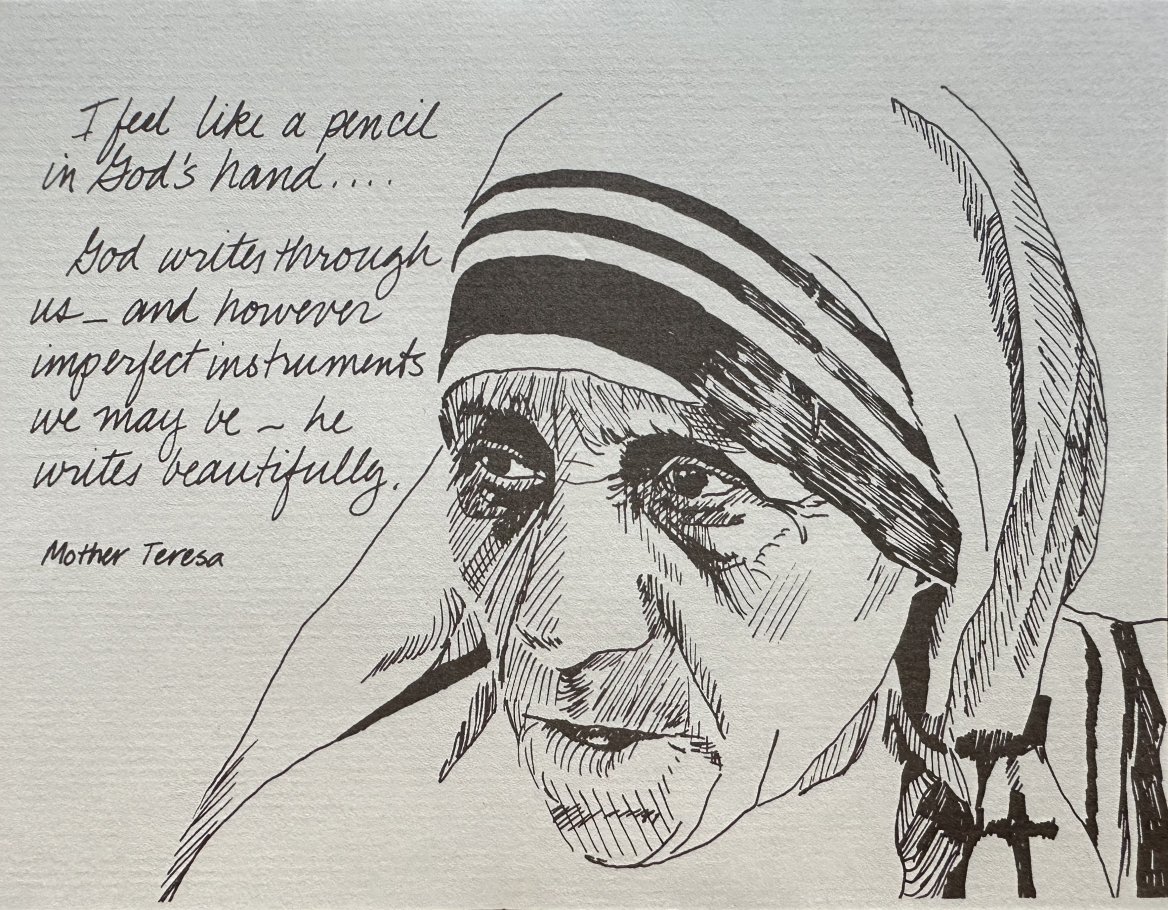 I feel like a pencil
in God's hand....
God writes through
us_ and however
imperfect instruments
we may be ~ he
writes beautifully.
Mother Teresa